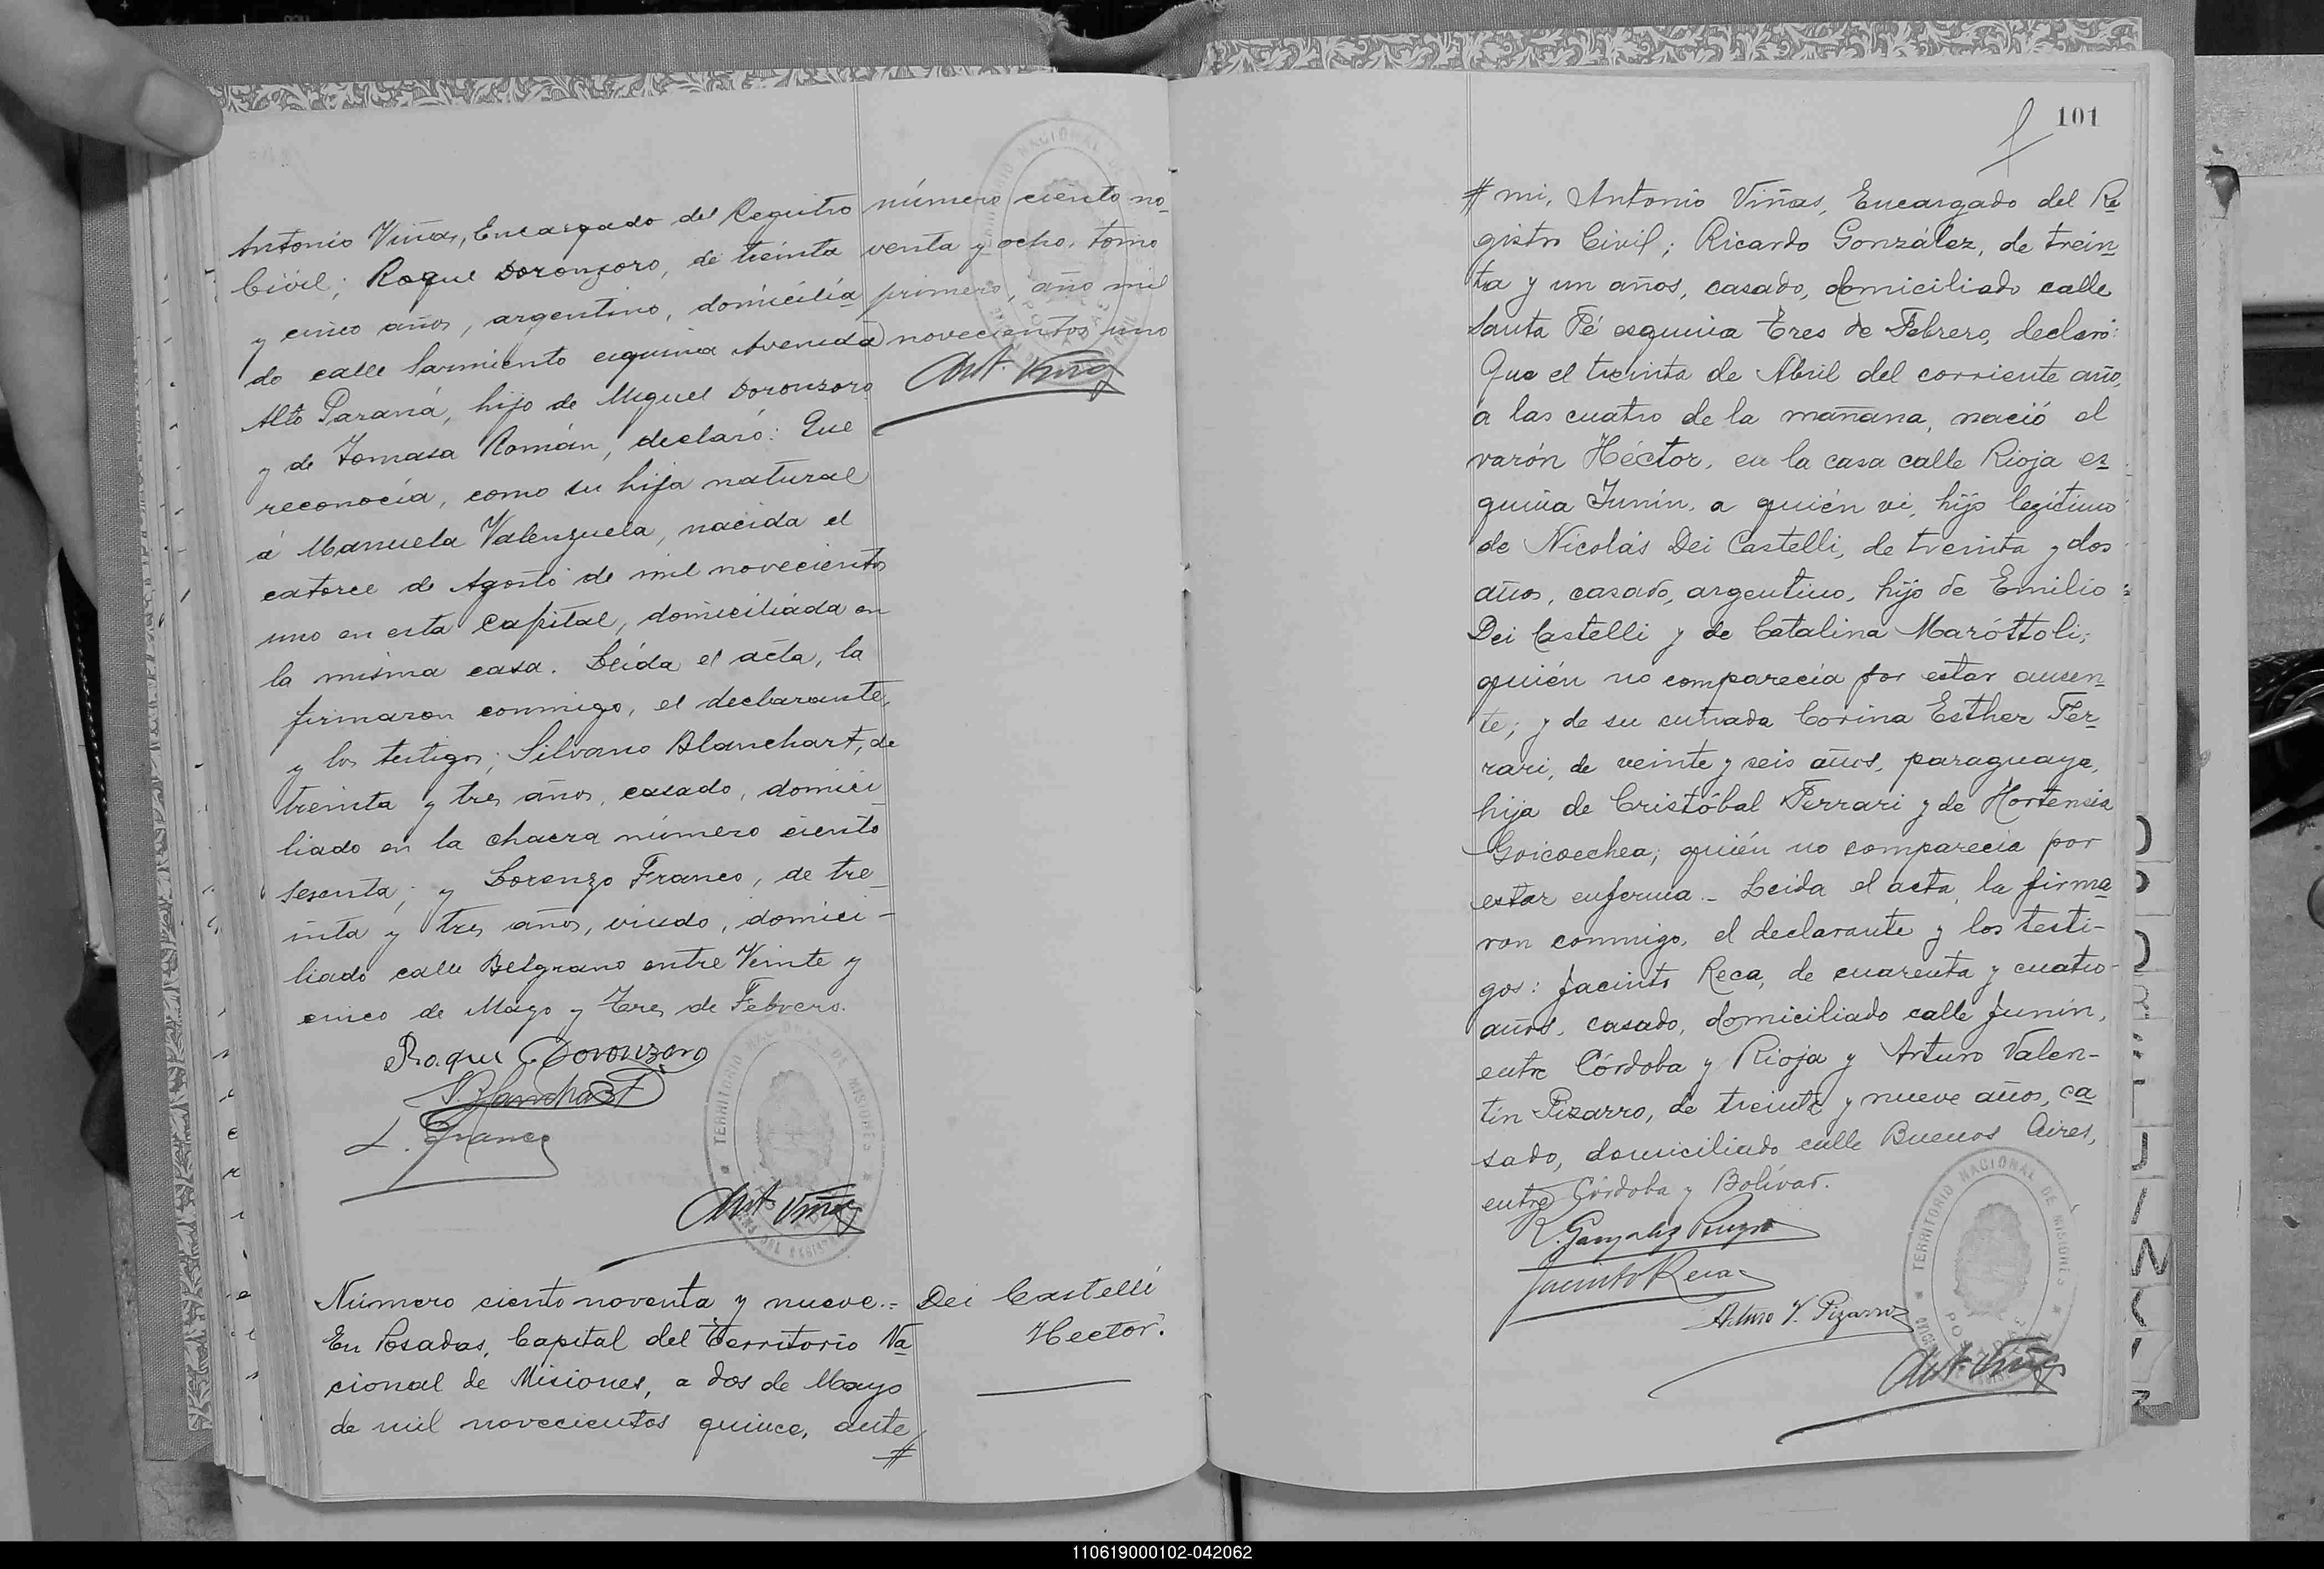 Antonio Viñas, Encargado del Registro
Civil; Roque Doronzoro, de treinta
y cinco años, argentino, domicilia
do calle Sarmiento esquina Avenida
Alto Paraná, hijo de Miguel Doronzoro
y de Tomasa Román, declaró: Que
reconocía, como su hija natural
á Manuela Valenzuela, nacida el
catorce de Agosto de mil novecientos
uno en esta Capital, domiciliada en
la misma casa. Leída el acta, la
firmaron conmigo, el declarante,
y los testigos; Silvano Blanchart, de
treinta y tres años, casado, domici
liado en la chacra número ciento
sesenta; y Lorenzo Franco, de tre_
inta y tres años, viudo, domici-
liado calle Belgrano entre Veinte y
cinco de Mayo y Tres de Febrero.
Roque Doronzoro
S. Blanchart
L. Franco
TERRITORIO NACIONAL DE MISIONES
Ant. Viñas
número ciento no_
venta y ocho, tomo
primero, año mil
novecientos uno
Ant. Viñas
Número ciento noventa y nueve.=
En Posadas, Capital del Territorio Na
cional de Misiones, a dos de Mayo
de mil novecientos quince, ante
#
Dei Castelli
Hector.
101
# mi, Antonio Viñas, Encargado del Re
gistro Civil; Ricardo González, de trein_
ta y un años, casado, domiciliado calle
Santa Fé esquina Tres de Febrero, declaró:
Que el treinta de Abril del corriente año,
a las cuatro de la mañana, nació el
varón Héctor, en la casa calle Rioja es_
quina Junín, a quién ví, hijo legítimo
de Nicolás Dei Castelli, de treinta y dos
años, casado, argentino, hijo de Emilio
Dei Castelli y de Catalina Maróttoli;
quién no comparecía por estar ausen_
te; y de su cuñada Corina Esther Fer_
rari, de veinte y seis años, paraguaya,
hija de Cristóbal Ferrari y de Hortensia
Goicoechea; quién no comparecia por
estar enferma.- Leida el acta, la firma
ron conmigo, el declarante y los testi-
gos: Jacinto Reca, de cuarenta y cuatro
años, casado, domiciliado calle Junín,
entre Córdoba y Rioja y Arturo Valen-
tín Pizarro, de treinta y nueve años, ca
sado, domiciliado calle Buenos Aires,
entre Córdoba y Bolívar.
R. Gonzalez
Jacinto Reca
Arturo V. Pizarro
TERRITORIO NACIONAL DE MISIONES
Ant. Viñas
110619000102-042062